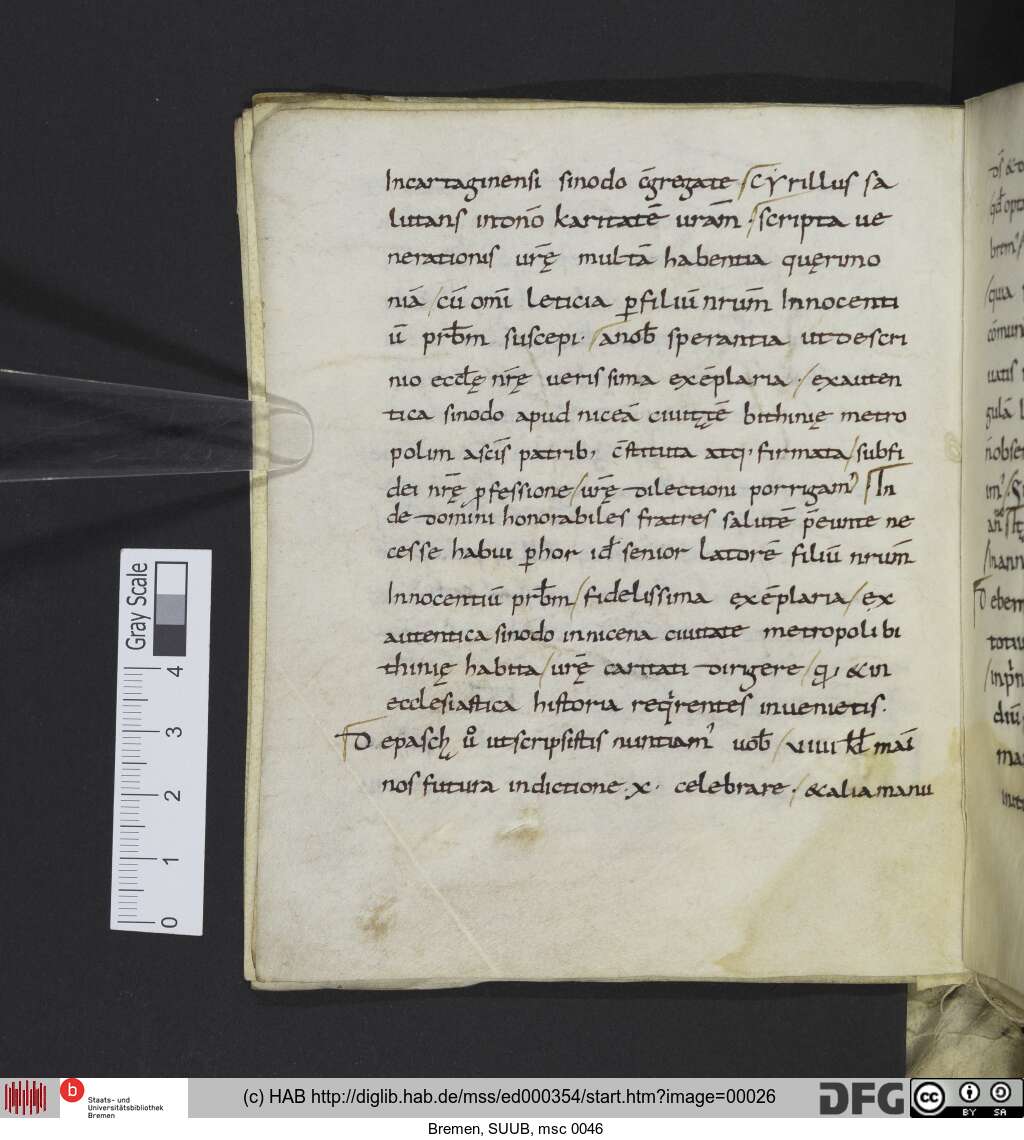 Incartaginensi sinodo c̄gregate scyrillus sa
lutans intonō karitatē urām̄ · scripta ue
nerationis urę̄ multā habentia quęrimo
niā / cū om̄i leticia ꝑfiliū nrūm Innocenti
ū prb̄m suscepi · anob̄ sperantia utdescri
nio eccłę nr̄ę uerissima exēplaria · / exauten
tica sinodo apud niceā ciuitętē bithinię metro
polim asc̄is patrib, c̄stituta atq, firmata / subfi
dei nr̄ę ꝓfessione / ur̄ę dilectioni porrigam᾽ In
de domini honorabiles fratres salutē p̄eunte ne
cesse habui ꝑhor id senior latorē filiū nrūm̄
Innocentiū prb̄m / fidelissima exēplaria / ex
autentica sinodo innicena ciuitate metropoli bi
thinię habita / ur̄ę caritati dirigere / q, & in
ecclesiastica historia reqͥrentes inuenietis ·
Depaschę ūo utscripsistis nuntiam᾽ uob̄ / xuiii kł mai
nos futura indictione · x · celebrare · / & alia manu
Gray Scale
0 1 2 3 4
Staats- und
Universitätsbibliothek
Bremen
(c) HAB http://diglib.hab.de/mss/ed000354/start.htm?image=00026
DFG
cc BY SA
Bremen, SUUB, msc 0046